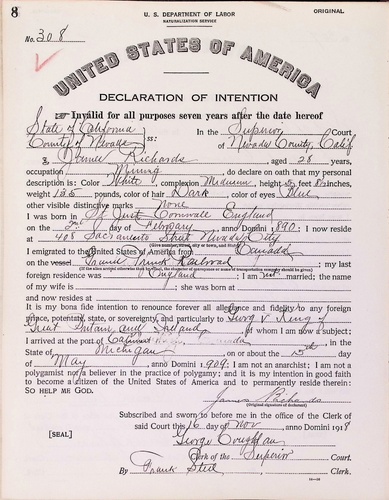 8
U. S. DEPARTMENT OF LABOR
NATURALIZATION SERVICE
ORIGINAL
No. 308
UNITED STATES OF AMERICA
DECLARATION OF INTENTION
Invalid for all purposes seven years after the date hereof
State of California
County of Nevada ss: In the Superior Court
of Nevada County, Calif
I, James Richards, aged 28 years,
occupation Mining, do declare on oath that my personal
description is: Color White, complexion Medium, height 5 feet 8½ inches,
weight 155 pounds, color of hair Dark, color of eyes Blue
other visible distinctive marks None
I was born in St Just Cornwall England
on the 2nd day of February, anno Domini 1890; I now reside
at 408 Sacramento Street Nevada City
I emigrated to the United States of America from Canada
on the vessel Grand Trunk Railroad; my last
foreign residence was England; I am not married; the name
of my wife is ; she was born at
and now resides at
It is my bona fide intention to renounce forever all allegiance and fidelity to any foreign
prince, potentate, state, or sovereignty, and particularly to George V King of
Great Britain and Ireland, of whom I am now a subject;
I arrived at the port of
State of Michigan, on or about the 15th day
of May, anno Domini 1909; I am not an anarchist; I am not a
polygamist nor a believer in the practice of polygamy; and it is my intention in good faith
to become a citizen of the United States of America and to permanently reside therein:
SO HELP ME GOD.
James Richards
(Original signature of declarant)
Subscribed and sworn to before me in the office of the Clerk of
[SEAL] said Court this 16 day of Nov, anno Domini 1918
George Coughlan
Clerk of the Superior Court.
By Frank Steel, Clerk.